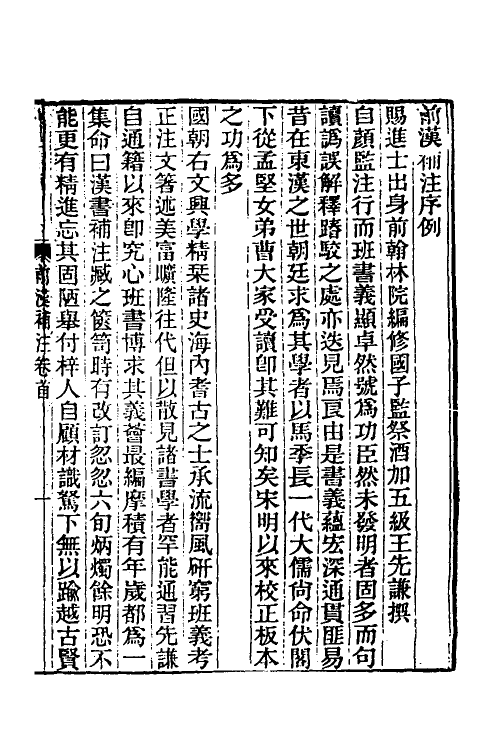 前漢補注序例
賜進士出身前翰林院編修國子監祭酒加五級王先謙撰
自顏監注行而班書義顯卓然號為功臣然未發明者固多而句
讀譌誤解釋踳駮之處亦迭見焉良由是書義蘊宏深通貫匪易
昔在東漢之世朝廷求為其學者以馬季長一代大儒尚命伏閣
下從孟堅女弟曹大家受讀卽其難可知矣宋明以來校正板本
之功為多
國朝右文興學精栞諸史海內耆古之士承流嚮風研窮班義考
正注文箸述美富曠隆往代但以散見諸書學者罕能通習先謙
自通籍以來卽究心班書博求其義薈最編摩積有年歲都為一
集命曰漢書補注臧之篋笥時有改訂忽忽六旬炳燭餘明恐不
能更有精進忘其固陋舉付梓人自顧材識駑下無以踰越古賢
前漢補注卷首
一